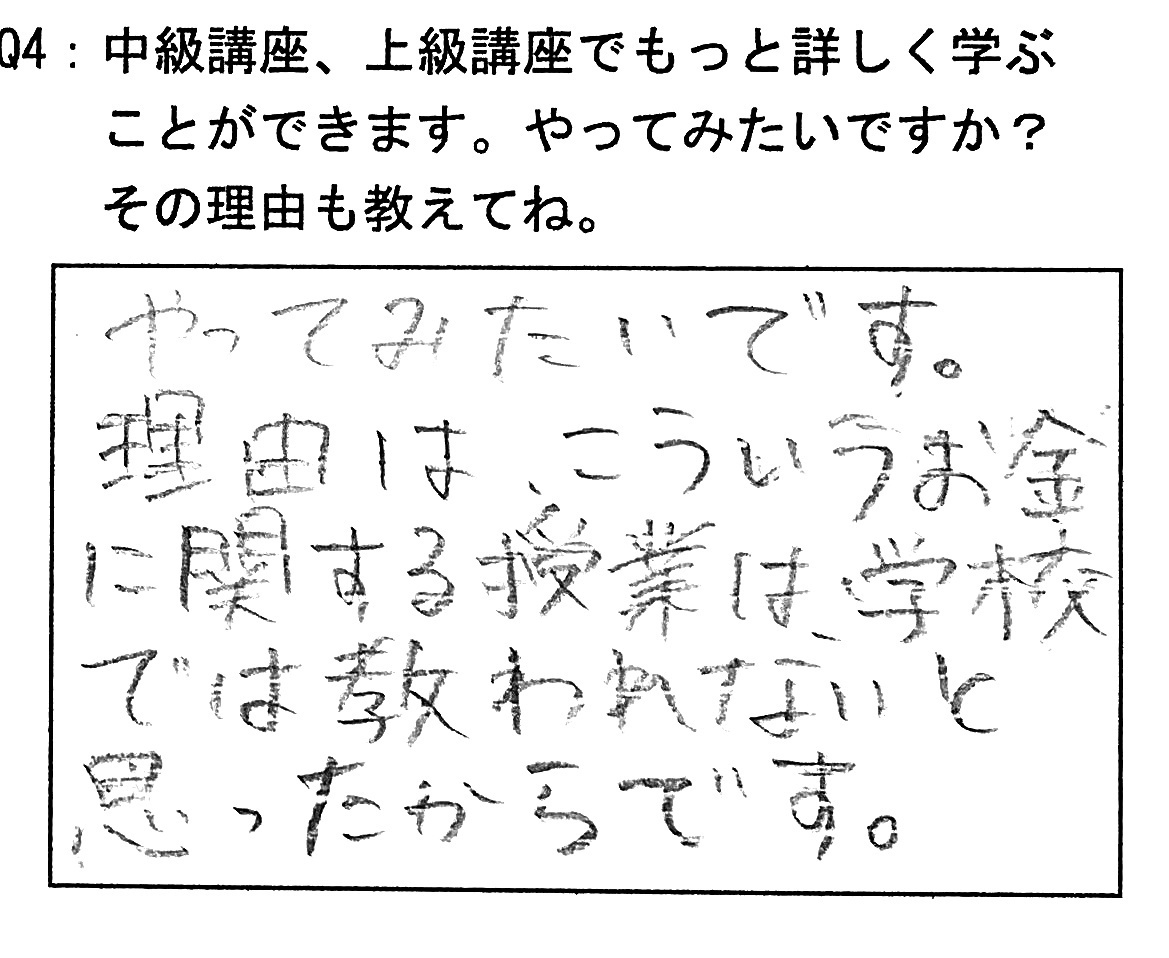 Q4：中級講座、上級講座でもっと詳しく学ぶ
ことができます。やってみたいですか？
その理由も教えてね。
やってみたいです。
理由は、こういうお金
に関する授業は、学校
では教われないと
思ったからです。